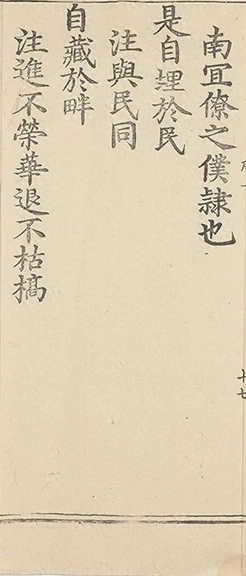 南冝僚之僕隷也
是自埋於民
注與民同
自藏於畔
注進不榮華退不枯槁
十七